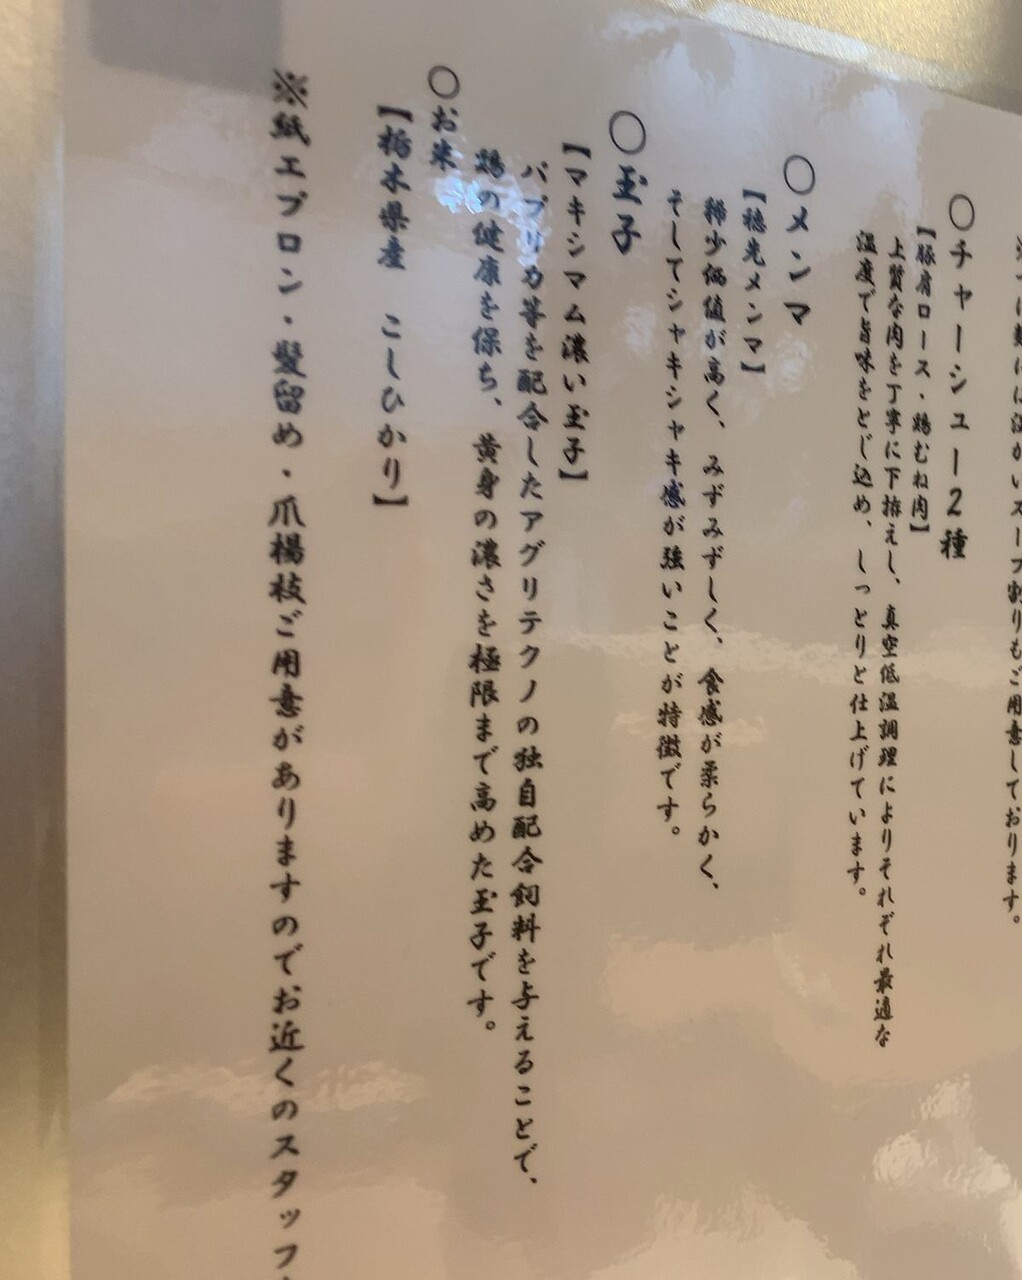 温かいスープ割りもご用意しております。
○チャーシュー2種
【豚肩ロース・鶏むね肉】
上質な肉を丁寧に下拵えし、真空低温調理によりそれぞれ最適な
温度で旨味をとじ込め、しっとりと仕上げています。
○メンマ
【穂先メンマ】
稀少価値が高く、みずみずしく、食感が柔らかく、
そしてシャキシャキ感が強いことが特徴です。
○玉子
【マキシマム濃い玉子】
パプリカ等を配合したアグリテクノの独自配合飼料を与えることで、
鶏の健康を保ち、黄身の濃さを極限まで高めた玉子です。
○お米
【栃木県産 こしひかり】
※紙エプロン・髪留め・爪楊枝ご用意がありますのでお近くのスタッフ